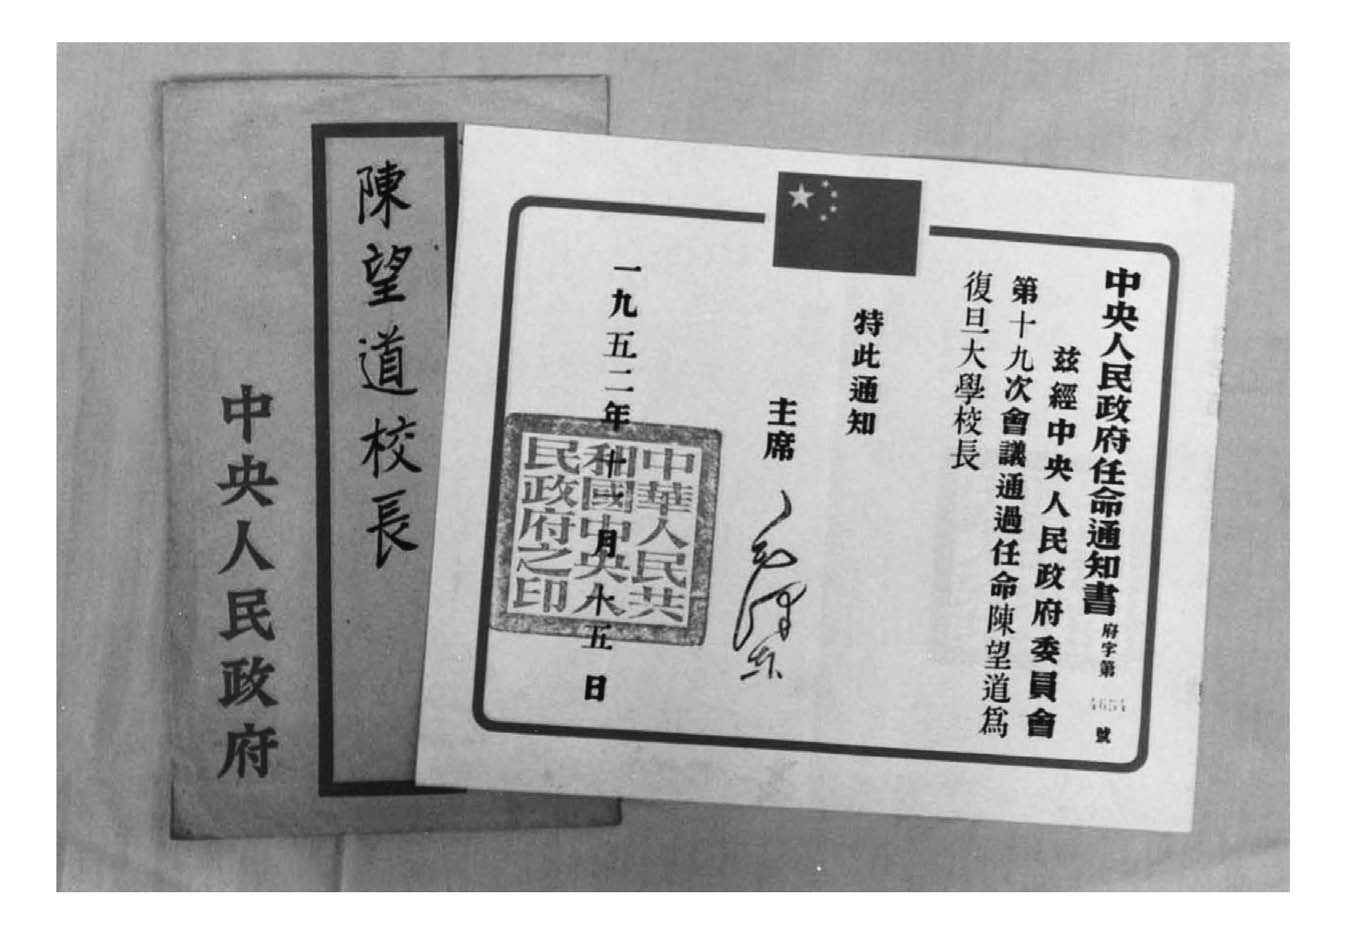 陳望道校長
中央人民政府
中央人民政府任命通知書 府字第4654號
兹經中央人民政府委員會
第十九次會議通過任命陳望道爲
復旦大學校長
特此通知
主席 毛澤東
一九五二年十一月十五日
中華人民共
和國中央人
民政府之印